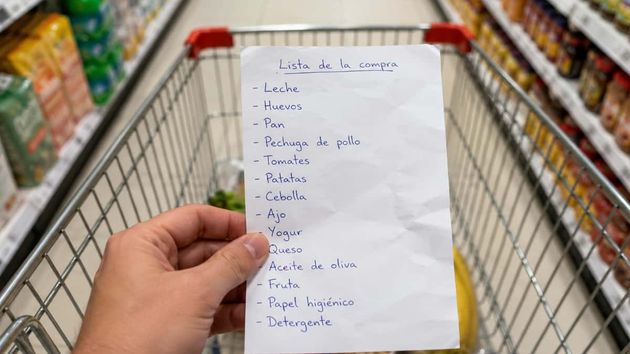 Lista de la compra
- Leche
- Huevos
- Pan
- Pechuga de pollo
- Tomates
- Patatas
- Cebolla
- Ajo
- Yogur
Queso
Aceite de oliva
- Fruta
- Papel higiénico
- Detergente